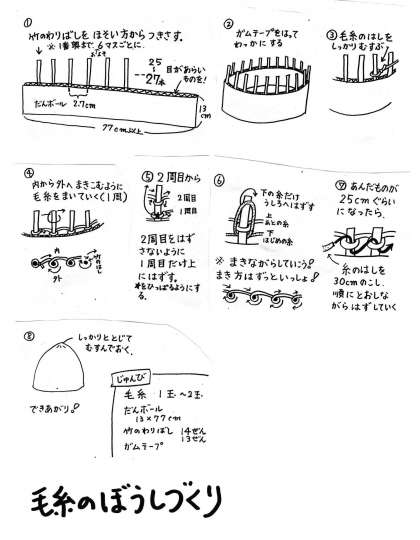 ①
竹のわりばしを ほそい方からつきさす。
※1番端まで、6マスごとに。
およそ
25
〜
27本
目があらい
ものを!
だんボール 2.7cm
13cm
77cm以上
②
ガムテープをはって
わっかにする
③ 毛糸のはしを
しっかりむすぶ
④
内から外へまきこむように
毛糸をまいていく(1周)
内
外
竹のわりばし
⑤ 2周目から
2周目
1周目
2周目をはず
さないように
1周目だけ上
にはずす。
をひっぱるようにす
る。
⑥
下の糸だけ
うしろへはずす
上
あとの糸
下
はじめの糸
※ まきながらしていこう!
まき方はずっといっしょ!
⑦ あんだものが
25cmぐらい
になったら、
糸のはしを
30cmのこし、
順にとおしな
がらはずしていく
⑧
しっかりととじて
むすんでおく。
できあがり!
じゅんび
毛糸 1玉〜2玉
だんボール
13×77cm
竹のわりばし 14ぜん
13ぜん
ガムテープ
毛糸のぼうしづくり